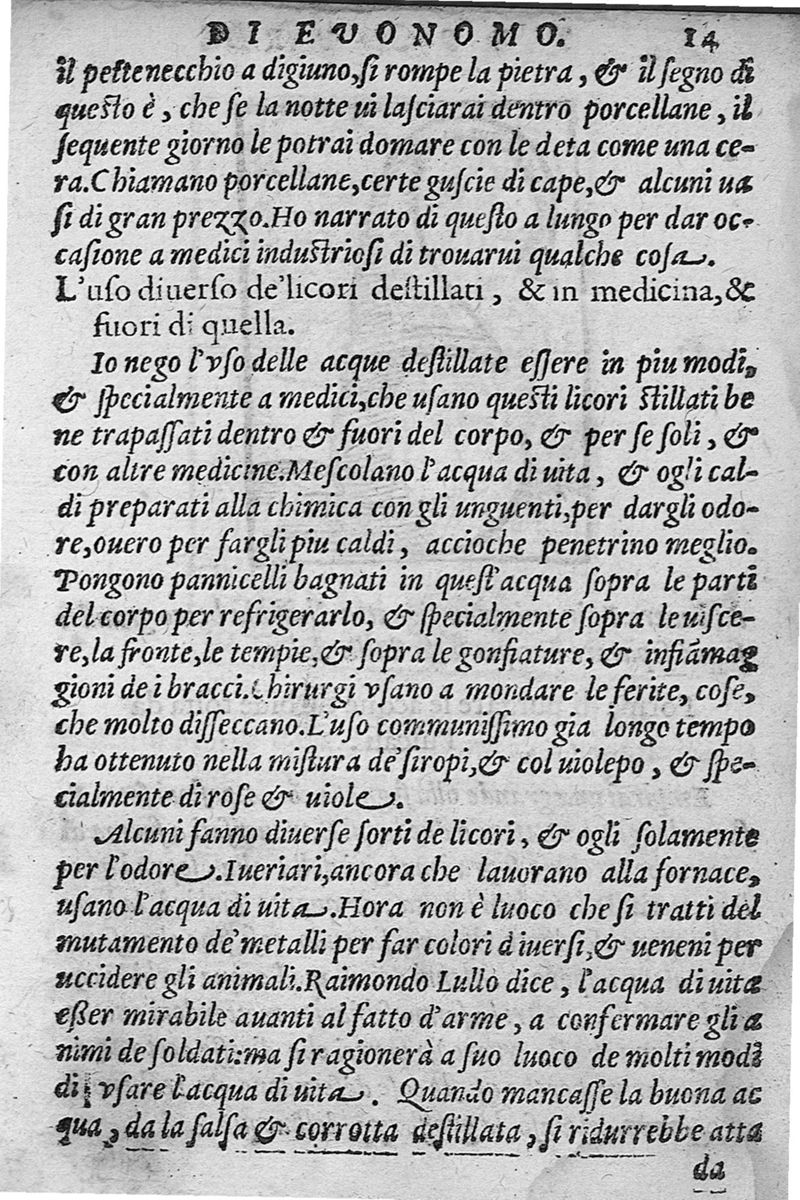 DI EVONOMO. 14
il pettenecchio a digiuno, si rompe la pietra, & il segno di
questo è, che se la notte ui lasciarai dentro porcellane, il
sequente giorno le potrai domare con le deta come una ce-
ra. Chiamano porcellane, certe guscie di cape, & alcuni ua
si di gran prezzo. Ho narrato di questo a lungo per dar oc-
casione a medici industriosi di trouarui qualche cosa.
L'uso diuerso de'licori destillati, & in medicina, &
fuori di quella.
Io nego l'vso delle acque destillate essere in piu modi,
& specialmente a medici, che usano questi licori stillati be
ne trapassati dentro & fuori del corpo, & per se soli, &
con altre medicine. Mescolano l'acqua di uita, & ogli cal-
di preparati alla chimica con gli unguenti, per dargli odo-
re, ouero per fargli piu caldi, accioche penetrino meglio.
Pongono pannicelli bagnati in quest'acqua sopra le parti
del corpo per refrigerarlo, & specialmente sopra le uisce-
re, la fronte, le tempie, & sopra le gonfiature, & infiãmag
gioni de i bracci. Chirurgi vsano a mondare le ferite, cose,
che molto disseccano. L'uso communissimo gia longo tempo
ha ottenuto nella mistura de'siropi, & col uiolepo, & spe-
cialmente di rose & uiole.
Alcuni fanno diuerse sorti de licori, & ogli solamente
per l'odore. I ueriari, ancora che lauorano alla fornace,
usano l'acqua di uita. Hora non è luoco che si tratti del
mutamento de'metalli per far colori diuersi, & ueneni per
uccidere gli animali. Raimondo Lullo dice, l'acqua di uita
esser mirabile auanti al fatto d'arme, a confermare gli a
nimi de soldati: ma si ragionerà a suo luoco de molti modi
di vsare l'acqua di uita. Quando mancasse la buona ac
qua, da la salsa & corrotta destillata, si ridurrebbe atta
da